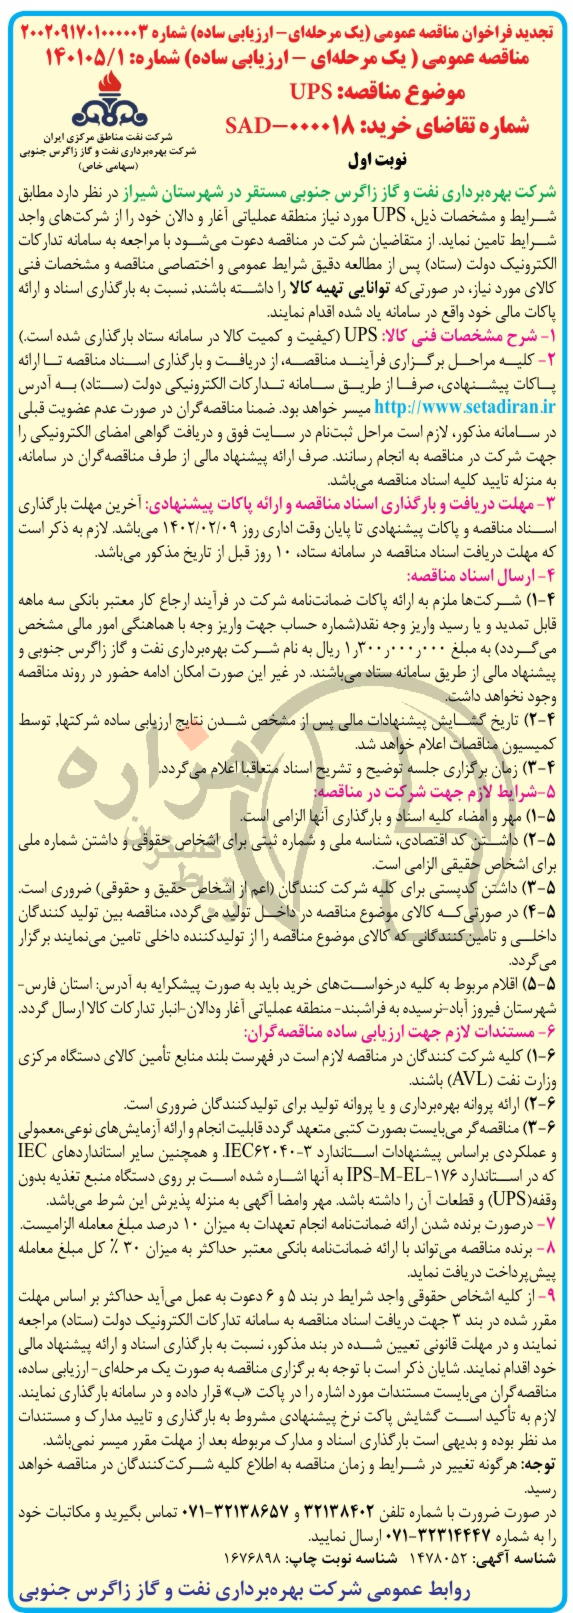 تجدید فراخوان مناقصه عمومی (یک مرحله‌ای- ارزیابی ساده) شماره ۲۰۰۲۰۹۱۷۰۱۰۰۰۰۰۳
مناقصه عمومی ( یک مرحله‌ای - ارزیابی ساده) شماره: ۱۴۰۱۰۵/۱
موضوع مناقصه: UPS
شماره تقاضای خرید: SAD-۰۰۰۰۰۱۸
نوبت اول
شرکت نفت مناطق مرکزی ایران
شرکت بهره‌برداری نفت و گاز زاگرس جنوبی
(سهامی خاص)
شرکت بهره‌برداری نفت و گاز زاگرس جنوبی مستقر در شهرستان شیراز در نظر دارد مطابق
شرایط و مشخصات ذیل، UPS مورد نیاز منطقه عملیاتی آغار و دالان خود را از شرکت‌های واجد
شرایط تامین نماید. از متقاضیان شرکت در مناقصه دعوت می‌شود با مراجعه به سامانه تدارکات
الکترونیک دولت (ستاد) پس از مطالعه دقیق شرایط عمومی و اختصاصی مناقصه و مشخصات فنی
کالای مورد نیاز، در صورتی‌که توانایی تهیه کالا را داشته باشند، نسبت به بارگذاری اسناد و ارائه
پاکات مالی خود واقع در سامانه یاد شده اقدام نمایند.
۱- شرح مشخصات فنی کالا: UPS (کیفیت و کمیت کالا در سامانه ستاد بارگذاری شده است.)
۲- کلیه مراحل برگزاری فرآیند مناقصه، از دریافت و بارگذاری اسناد مناقصه تا ارائه
پاکات پیشنهادی، صرفا از طریق سامانه تدارکات الکترونیکی دولت (ستاد) به آدرس
http://www.setadiran.ir میسر خواهد بود. ضمنا مناقصه‌گران در صورت عدم عضویت قبلی
در سامانه مذکور، لازم است مراحل ثبت‌نام در سایت فوق و دریافت گواهی امضای الکترونیکی را
جهت شرکت در مناقصه به انجام رسانند. صرف ارائه پیشنهاد مالی از طرف مناقصه‌گران در سامانه،
به منزله تایید کلیه اسناد مناقصه می‌باشد.
۳- مهلت دریافت و بارگذاری اسناد مناقصه و ارائه پاکات پیشنهادی: آخرین مهلت بارگذاری
اسناد مناقصه و پاکات پیشنهادی تا پایان وقت اداری روز ۱۴۰۲/۰۲/۰۹ می‌باشد. لازم به ذکر است
که مهلت دریافت اسناد مناقصه در سامانه ستاد، ۱۰ روز قبل از تاریخ مذکور می‌باشد.
۴- ارسال اسناد مناقصه:
۴-۱) شرکت‌ها ملزم به ارائه پاکات ضمانت‌نامه شرکت در فرآیند ارجاع کار معتبر بانکی سه ماهه
قابل تمدید و یا رسید واریز وجه نقد(شماره حساب جهت واریز وجه با هماهنگی امور مالی مشخص
می‌گردد) به مبلغ ۱٫۳۰۰٫۰۰۰٫۰۰۰ ریال به نام شرکت بهره‌برداری نفت و گاز زاگرس جنوبی و
پیشنهاد مالی از طریق سامانه ستاد می‌باشند. در غیر این صورت امکان ادامه حضور در روند مناقصه
وجود نخواهد داشت.
۴-۲) تاریخ گشایش پیشنهادات مالی پس از مشخص شدن نتایج ارزیابی ساده شرکتها، توسط
کمیسیون مناقصات اعلام خواهد شد.
۴-۳) زمان برگزاری جلسه توضیح و تشریح اسناد متعاقبا اعلام می‌گردد.
۵-شرایط لازم جهت شرکت در مناقصه:
۵-۱) مهر و امضاء کلیه اسناد و بارگذاری آنها الزامی است.
۵-۲) داشتن کد اقتصادی، شناسه ملی و شماره ثبتی برای اشخاص حقوقی و داشتن شماره ملی
برای اشخاص حقیقی الزامی است.
۵-۳) داشتن کدپستی برای کلیه شرکت کنندگان (اعم از اشخاص حقیق و حقوقی) ضروری است.
۵-۴) در صورتی‌که کالای موضوع مناقصه در داخل تولید می‌گردد، مناقصه بین تولید کنندگان
داخلی و تامین‌کنندگانی که کالای موضوع مناقصه را از تولیدکننده داخلی تامین می‌نمایند برگزار
می‌گردد.
۵-۵) اقلام مربوط به کلیه درخواست‌های خرید باید به صورت پیشکرایه به آدرس: استان فارس-
شهرستان فیروز آباد-نرسیده به فراشبند- منطقه عملیاتی آغار ودالان-انبار تدارکات کالا ارسال گردد.
۶- مستندات لازم جهت ارزیابی ساده مناقصه‌گران:
۶-۱) کلیه شرکت کنندگان در مناقصه لازم است در فهرست بلند منابع تأمین کالای دستگاه مرکزی
وزارت نفت (AVL) باشند.
۶-۲) ارائه پروانه بهره‌برداری و یا پروانه تولید برای تولیدکنندگان ضروری است.
۶-۳) مناقصه‌گر می‌بایست بصورت کتبی متعهد گردد قابلیت انجام و ارائه آزمایش‌های نوعی،معمولی
و عملکردی براساس پیشنهادات استاندارد IEC۶۲۰۴۰-۳. و همچنین سایر استانداردهای IEC
که در استاندارد IPS-M-EL-۱۷۶ به آنها اشاره شده است بر روی دستگاه منبع تغذیه بدون
وقفه(UPS) و قطعات آن را داشته باشد. مهر وامضا آگهی به منزله پذیرش این شرط می‌باشد.
۷- درصورت برنده شدن ارائه ضمانت‌نامه انجام تعهدات به میزان ۱۰ درصد مبلغ معامله الزامیست.
۸- برنده مناقصه می‌تواند با ارائه ضمانت‌نامه بانکی معتبر حداکثر به میزان ۳۰ ٪ کل مبلغ معامله
پیش‌پرداخت دریافت نماید.
۹- از کلیه اشخاص حقوقی واجد شرایط در بند ۵ و ۶ دعوت به عمل می‌آید حداکثر بر اساس مهلت
مقرر شده در بند ۳ جهت دریافت اسناد مناقصه به سامانه تدارکات الکترونیک دولت (ستاد) مراجعه
نمایند و در مهلت قانونی تعیین شده در بند مذکور، نسبت به بارگذاری اسناد و ارائه پیشنهاد مالی
خود اقدام نمایند. شایان ذکر است با توجه به برگزاری مناقصه به صورت یک مرحله‌ای- ارزیابی ساده،
مناقصه‌گران می‌بایست مستندات مورد اشاره را در پاکت «ب» قرار داده و در سامانه بارگذاری نمایند.
لازم به تأکید است گشایش پاکت نرخ پیشنهادی مشروط به بارگذاری و تایید مدارک و مستندات
مد نظر بوده و بدیهی است بارگذاری اسناد و مدارک مربوطه بعد از مهلت مقرر میسر نمی‌باشد.
توجه: هرگونه تغییر در شرایط و زمان مناقصه به اطلاع کلیه شرکت‌کنندگان در مناقصه خواهد
رسید.
در صورت ضرورت با شماره تلفن ۳۲۱۳۸۴۰۲ و ۳۲۱۳۸۶۵۷-۰۷۱ تماس بگیرید و مکاتبات خود
را به شماره ۳۲۳۱۴۴۴۷-۰۷۱ ارسال نمایید.
شناسه آگهی: ۱۴۷۸۰۵۲ شناسه نوبت چاپ: ۱۶۷۶۸۹۸
روابط عمومی شرکت بهره‌برداری نفت و گاز زاگرس جنوبی
هزاره